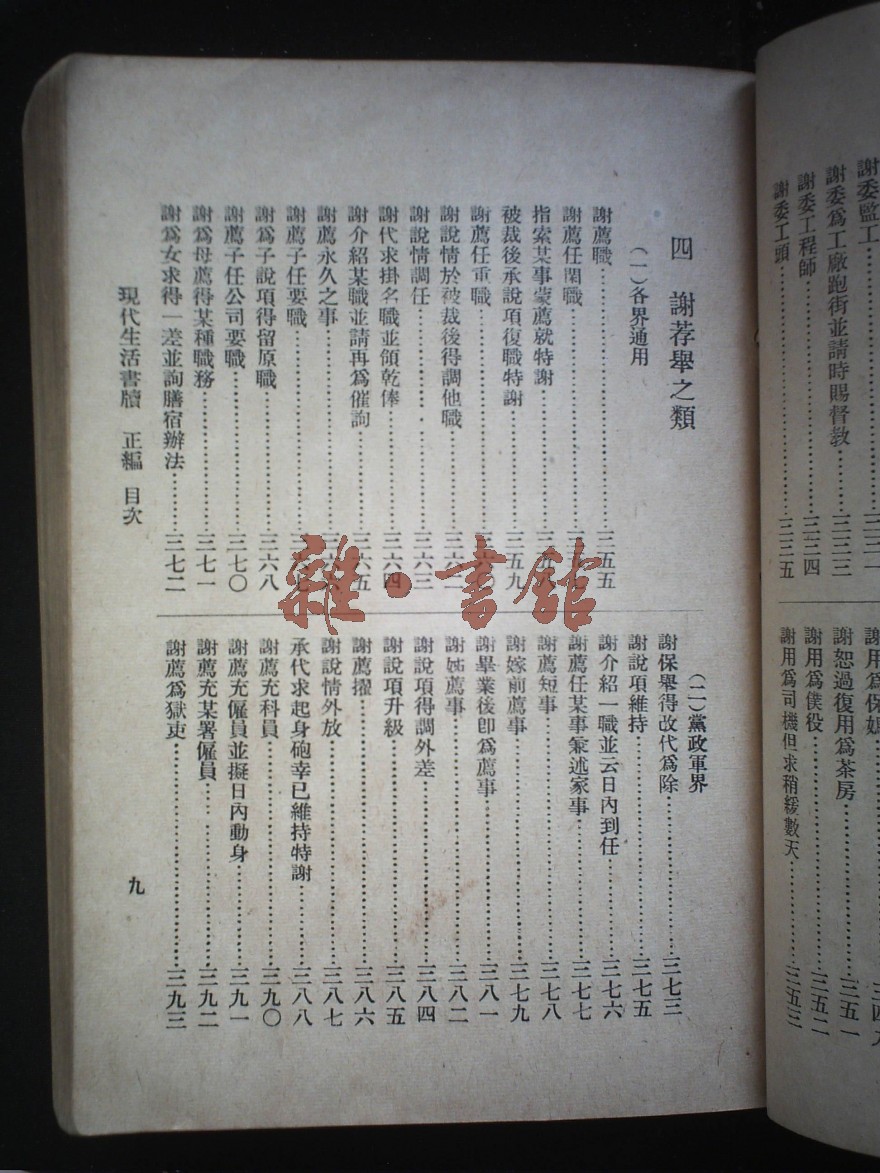 謝委監工
謝委爲工廠跑街並請時賜督教…三三三
謝委工程師…三三四
謝委工頭…三三五
謝用爲保媽
謝恕過復用爲茶房…三五一
謝用爲僕役…三五二
謝用爲司機但求稍緩數天…三五三
四 謝荐舉之類
(一)各界通用
謝薦職…三五五
謝薦任閑職
指索某事蒙薦就特謝
被裁後承說項復職特謝…三五九
謝薦任重職
謝說情於被裁後得調他職…三六二
謝說情調任…三六三
謝代求掛名職並領乾俸…三六四
謝介紹某職並請再爲催詢…三六五
謝薦永久之事
謝薦子任要職
謝爲子說項得留原職…三六八
謝薦子任公司要職…三七〇
謝爲母薦得某種職務…三七一
謝爲女求得一差並詢膳宿辦法…三七二
(二)黨政軍界
謝保舉得改代爲除…三七三
謝說項維持…三七五
謝介紹一職並云日內到任…三七六
謝薦任某事兼述家事…三七七
謝薦短事…三七八
謝嫁前薦事…三七九
謝畢業後卽爲薦事…三八一
謝姊薦事…三八二
謝說項得調外差…三八四
謝說項升級…三八五
謝薦擢…三八六
謝說情外放…三八七
承代求起身砲幸已維持特謝…三八八
謝薦充科員…三九〇
謝薦充僱員並擬日內動身…三九一
謝薦充某署僱員…三九二
謝薦爲獄吏…三九三
現代生活書牘 正編 目次
九
雜·書館